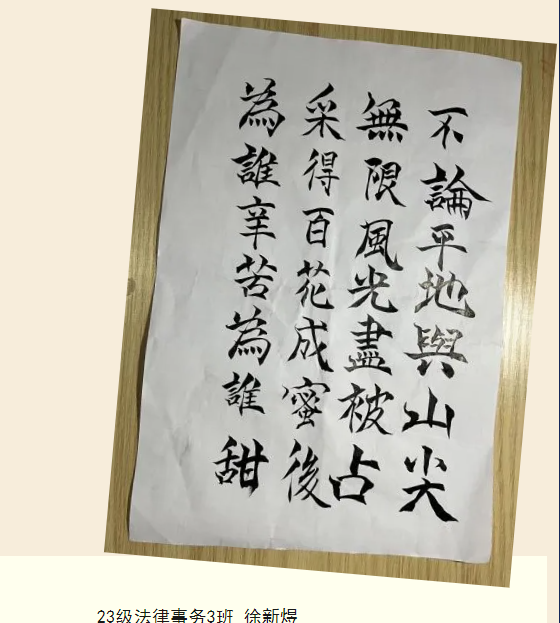 不論平地與山尖
無限風光盡被占
采得百花成蜜後
為誰辛苦為誰甜
23级法律事务3班 徐新煜